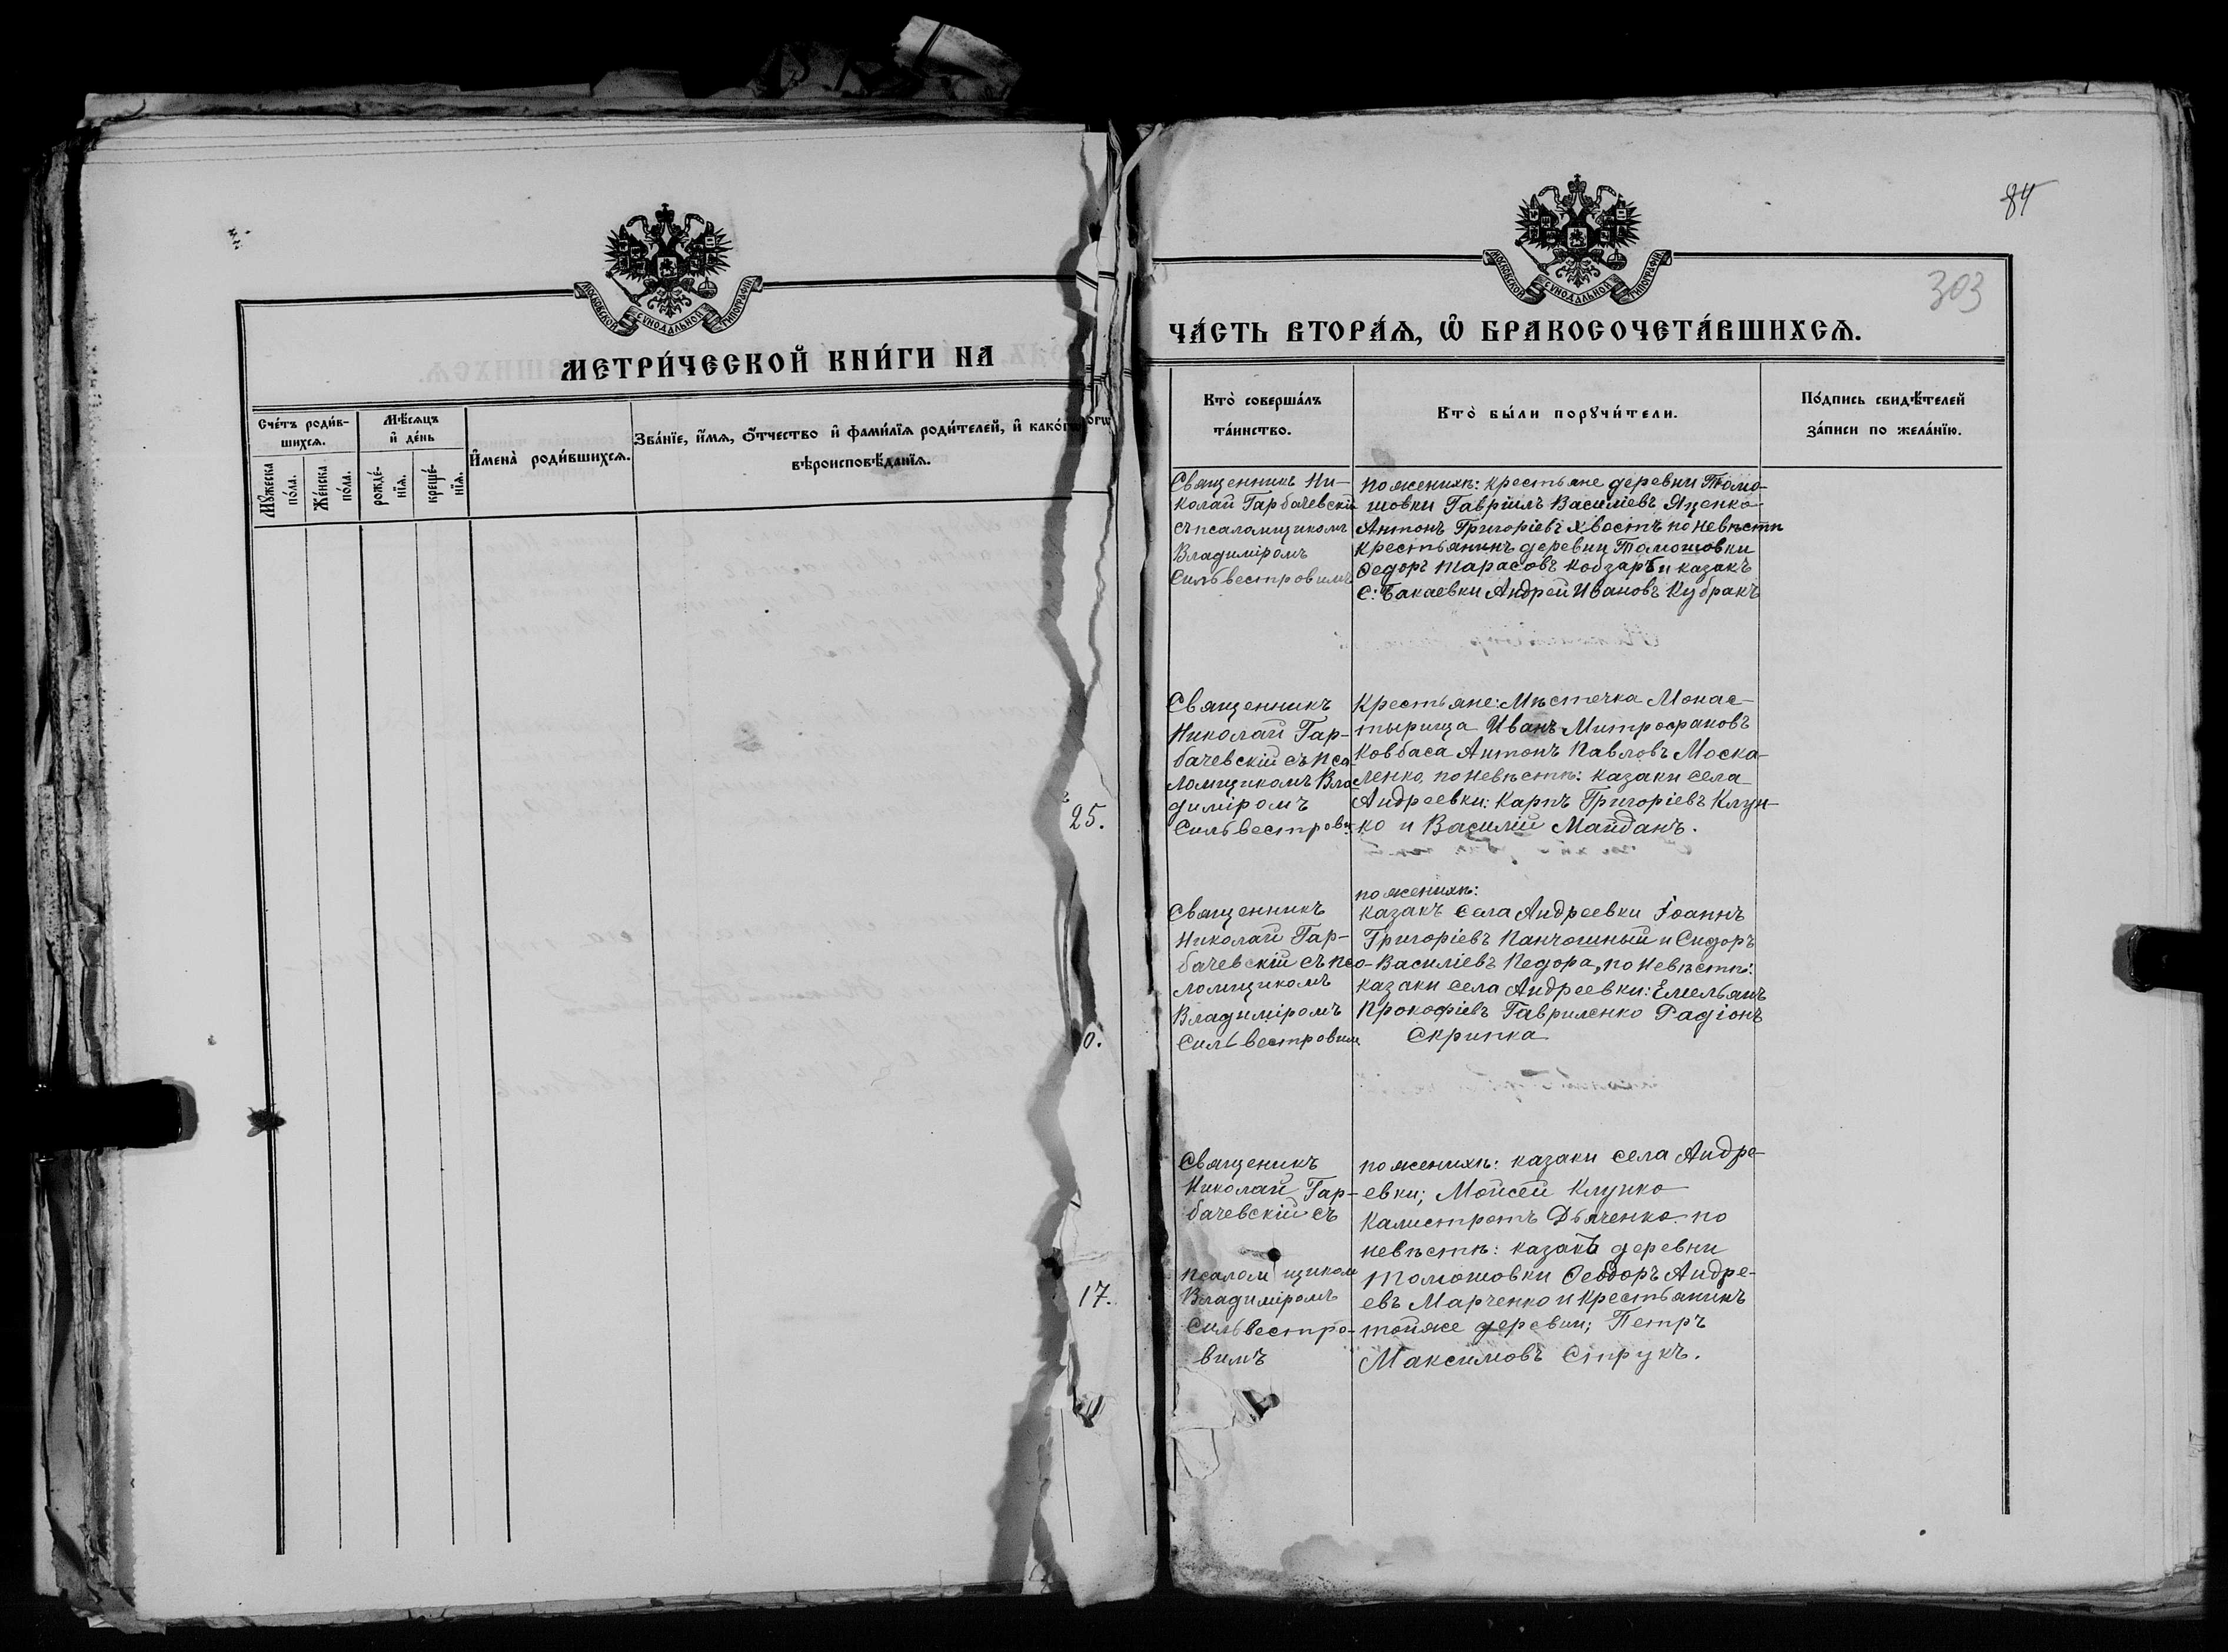 МОСКОВСКОЙ СУНОДАЛЬНОЙ ТИПОГРАФІИ
МЕТРИ́ЧЕСКОЙ КНИ́ГИ НА
Сче́тъ роди́в-
шихсѧ.
Мѣ́сѧцъ
и҆ де́нь
И҆мена̀ роди́вшихсѧ.
Зва́нїе, и҆́мѧ, ѻ҆́тчество и҆ фами́лїѧ роди́телей, и҆ како́гѡ
вѣроисповѣ́данїѧ.
Мꙋ́жеска
по́ла.
Же́нска
по́ла.
рожде́-
нїѧ.
креще́-
нїѧ.
огѡ
25.
0.
17.
84
303
МОСКОВСКОЙ СУНОДАЛЬНОЙ ТИПОГРАФІИ
ЧА́СТЬ ВТОРА́Ѧ, Ѡ҆ БРАКОСОЧЕТА́ВШИХСѦ.
Кто̀ соверша́лъ
та́инство.
Кто̀ бы́ли порꙋчи́тели.
По́дпись свидѣ́телей
за́писи по жела́нїю.
Священникъ Ни-
колай Гарбачевскій
съ псаломщикомъ
Владиміромъ
Сильвестровимъ
по женихѣ: крестьяне деревни Томо-
шовки Гавріилъ Василіевъ Яценко
Антонъ Григоріевъ Хвостъ по невѣстѣ
крестьянинъ деревни Томошовки
Федоръ Тарасовъ Кобзарь и казакъ
с: Бакаевки Андрей Ивановъ Кубракъ
Священникъ
Николай Гар-
бачевскій съ пса
ломщикомъ Вла
диміромъ
Сильвестрови
Крестьяне: Мѣстечка Монас-
тырища Иванъ Митрофановъ
Ковбаса Антонъ Павловъ Моска-
ленко, по невѣстѣ: казаки села
Андреевки: Карпъ Григоріевъ Клун-
ко и Василій Майданъ.
Священникъ
Николай Гар-
бачевскій съ пса-
ломщикомъ
Владиміромъ
Сильвестровим
по женихѣ:
казакъ села Андреевки Іоаннъ
Григоріевъ Панчошный и Сидоръ
Василіевъ Педора, по невѣстѣ:
казаки села Андреевки: Емельянъ
Прокофіевъ Гавриленко Радіонъ
Скрипка
Священикъ
Николай Гар-
бачевскій съ
псаломщиком
Владиміромъ
Сильвестро-
вимъ
по женихѣ: казаки села Андре-
евки; Мойсей Клунко
Калистратъ Дьяченко по
невѣстѣ: казакъ деревни
Томошовки Феодоръ Андре-
евъ Марченко и крестьянинъ
тойже деревни; Петръ
Максимовъ Струкъ.